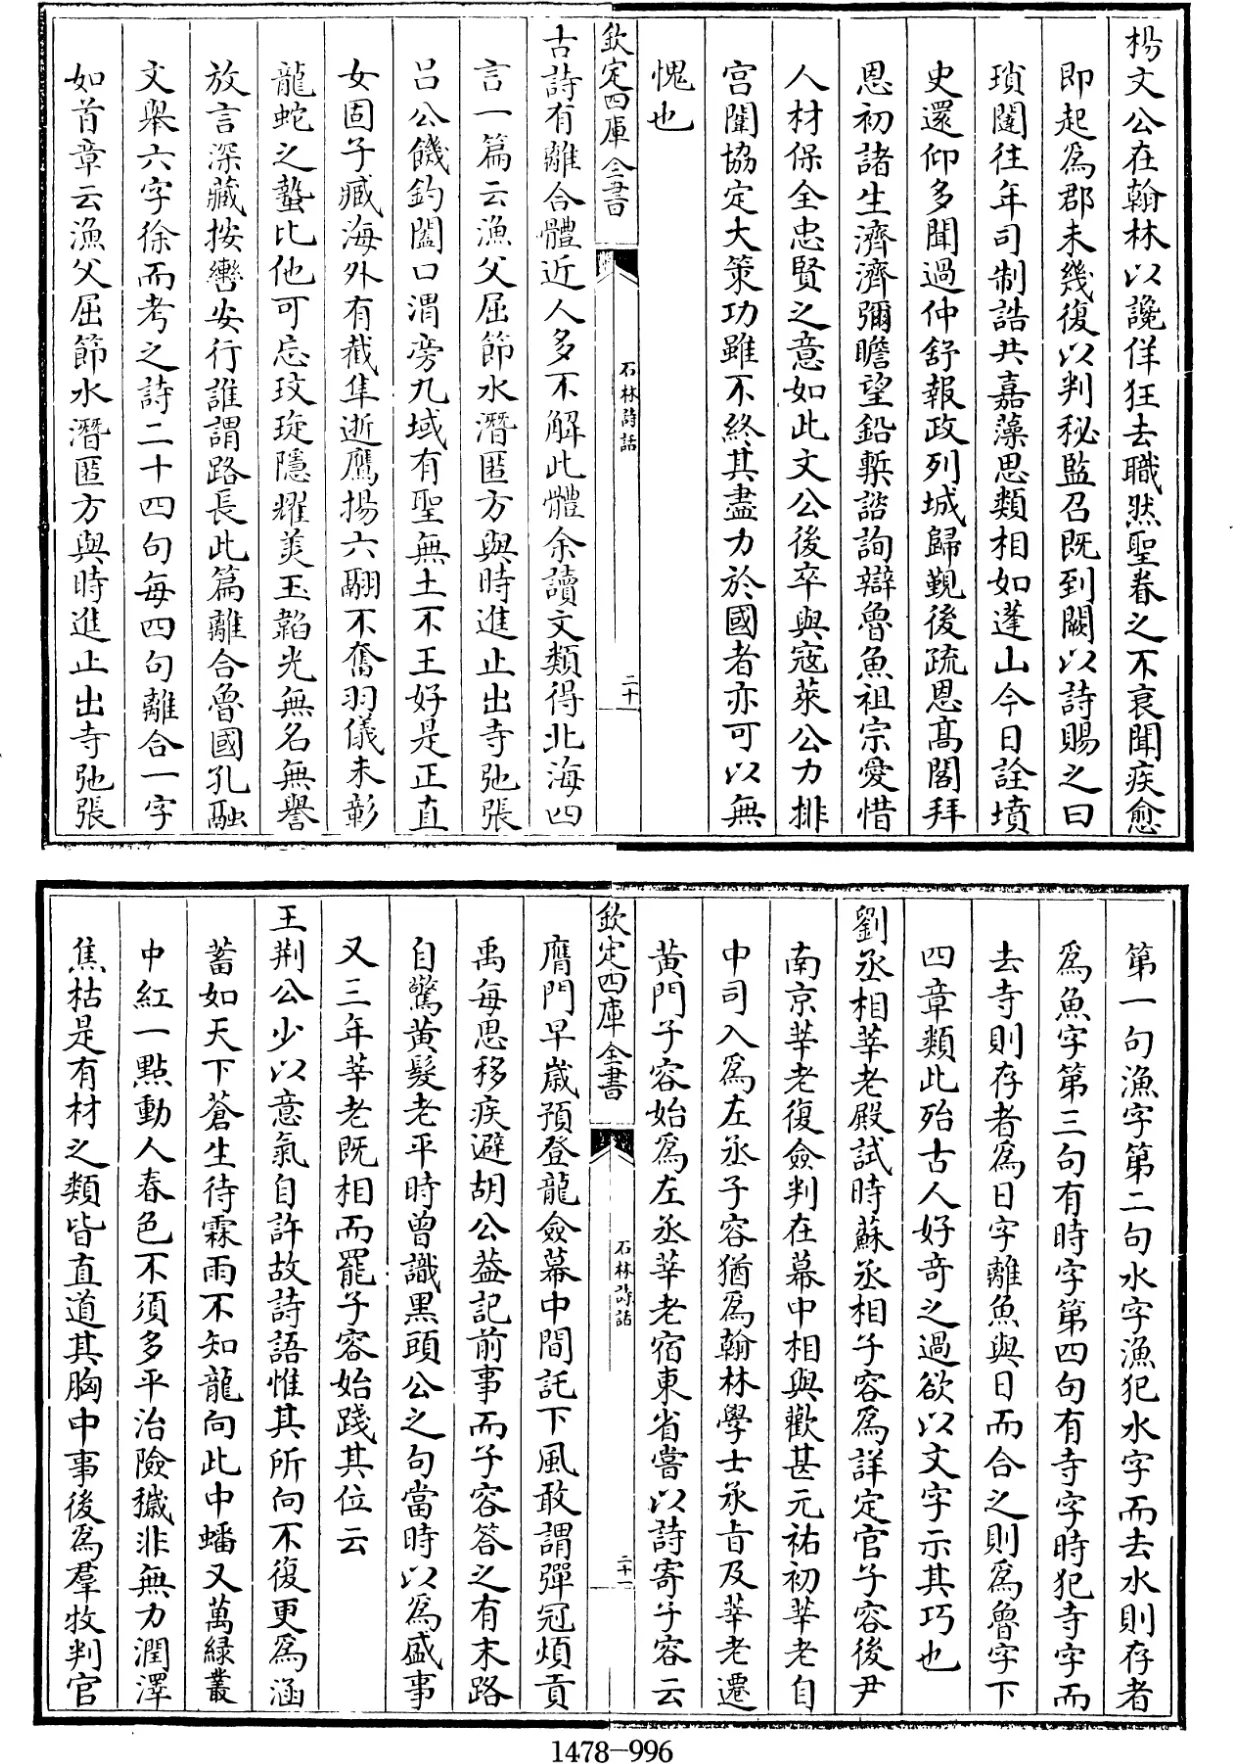 楊文公在翰林以讒佯狂去職然聖眷之不衰聞疾愈
即起爲郡未幾復以判秘監召既到闕以詩賜之曰
瑣闥往年司制誥共嘉藻思類相如蓬山今日詮墳
史還仰多聞過仲舒報政列城歸覲後疏恩髙閣拜
恩初諸生濟濟彌瞻望鉛槧諮詢辯魯魚祖宗愛惜
人材保全忠賢之意如此文公後卒與寇萊公力排
宫闈協定大策功雖不終其盡力於國者亦可以無
愧也
欽定四庫全書
石林詩話
二十
古詩有離合體近人多不解此體余讀文類得北海四
言一篇云漁父屈節水潛匿方與時進止出寺弛張
吕公饑釣闔口渭旁九域有聖無土不王好是正直
女固子臧海外有截隼逝鷹揚六翮不奮羽儀未彰
龍蛇之蟄比他可忘玟琁隱耀美玉韜光無名無譽
放言深藏按轡安行誰謂路長此篇離合魯國孔融
文舉六字徐而考之詩二十四句每四句離合一字
如首章云漁父屈節水潛匿方與時進止出寺弛張
第一句漁字第二句水字漁犯水字而去水則存者
爲魚字第三句有時字第四句有寺字時犯寺字而
去寺則存者爲日字離魚與日而合之則爲魯字下
四章類此殆古人好奇之過欲以文字示其巧也
劉丞相莘老殿試時蘇丞相子容爲詳定官子容後尹
南京莘老復僉判在幕中相與歡甚元祐初莘老自
中司入爲左丞子容猶爲翰林學士承旨及莘老遷
黄門子容始爲左丞莘老宿東省嘗以詩寄子容云
欽定四庫全書
石林詩話
二十一
膺門早歲預登龍僉幕中間託下風敢謂彈冠煩貢
禹每思移疾避胡公葢記前事而子容答之有末路
自驚黄髮老平時曾識黑頭公之句當時以爲盛事
又三年莘老既相而罷子容始踐其位云
王荆公少以意氣自許故詩語惟其所向不復更爲涵
蓄如天下蒼生待霖雨不知龍向此中蟠又萬緑叢
中紅一點動人春色不須多平治險穢非無力潤澤
焦枯是有材之類皆直道其胸中事後爲羣牧判官
1478-996